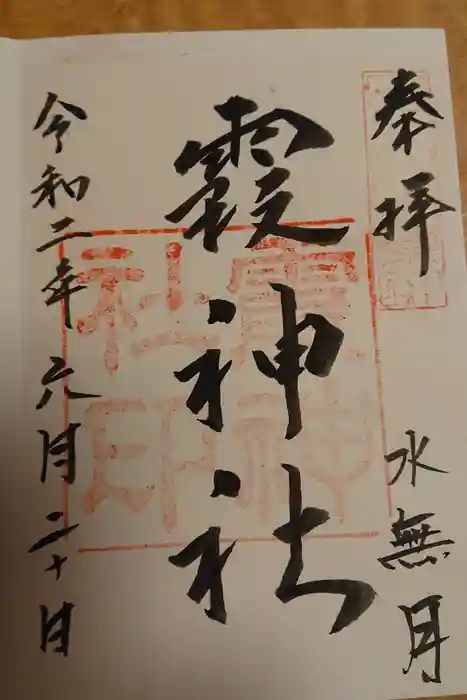 奉拝
水無月
霞神社
霞神社印
令和二年六月二十日